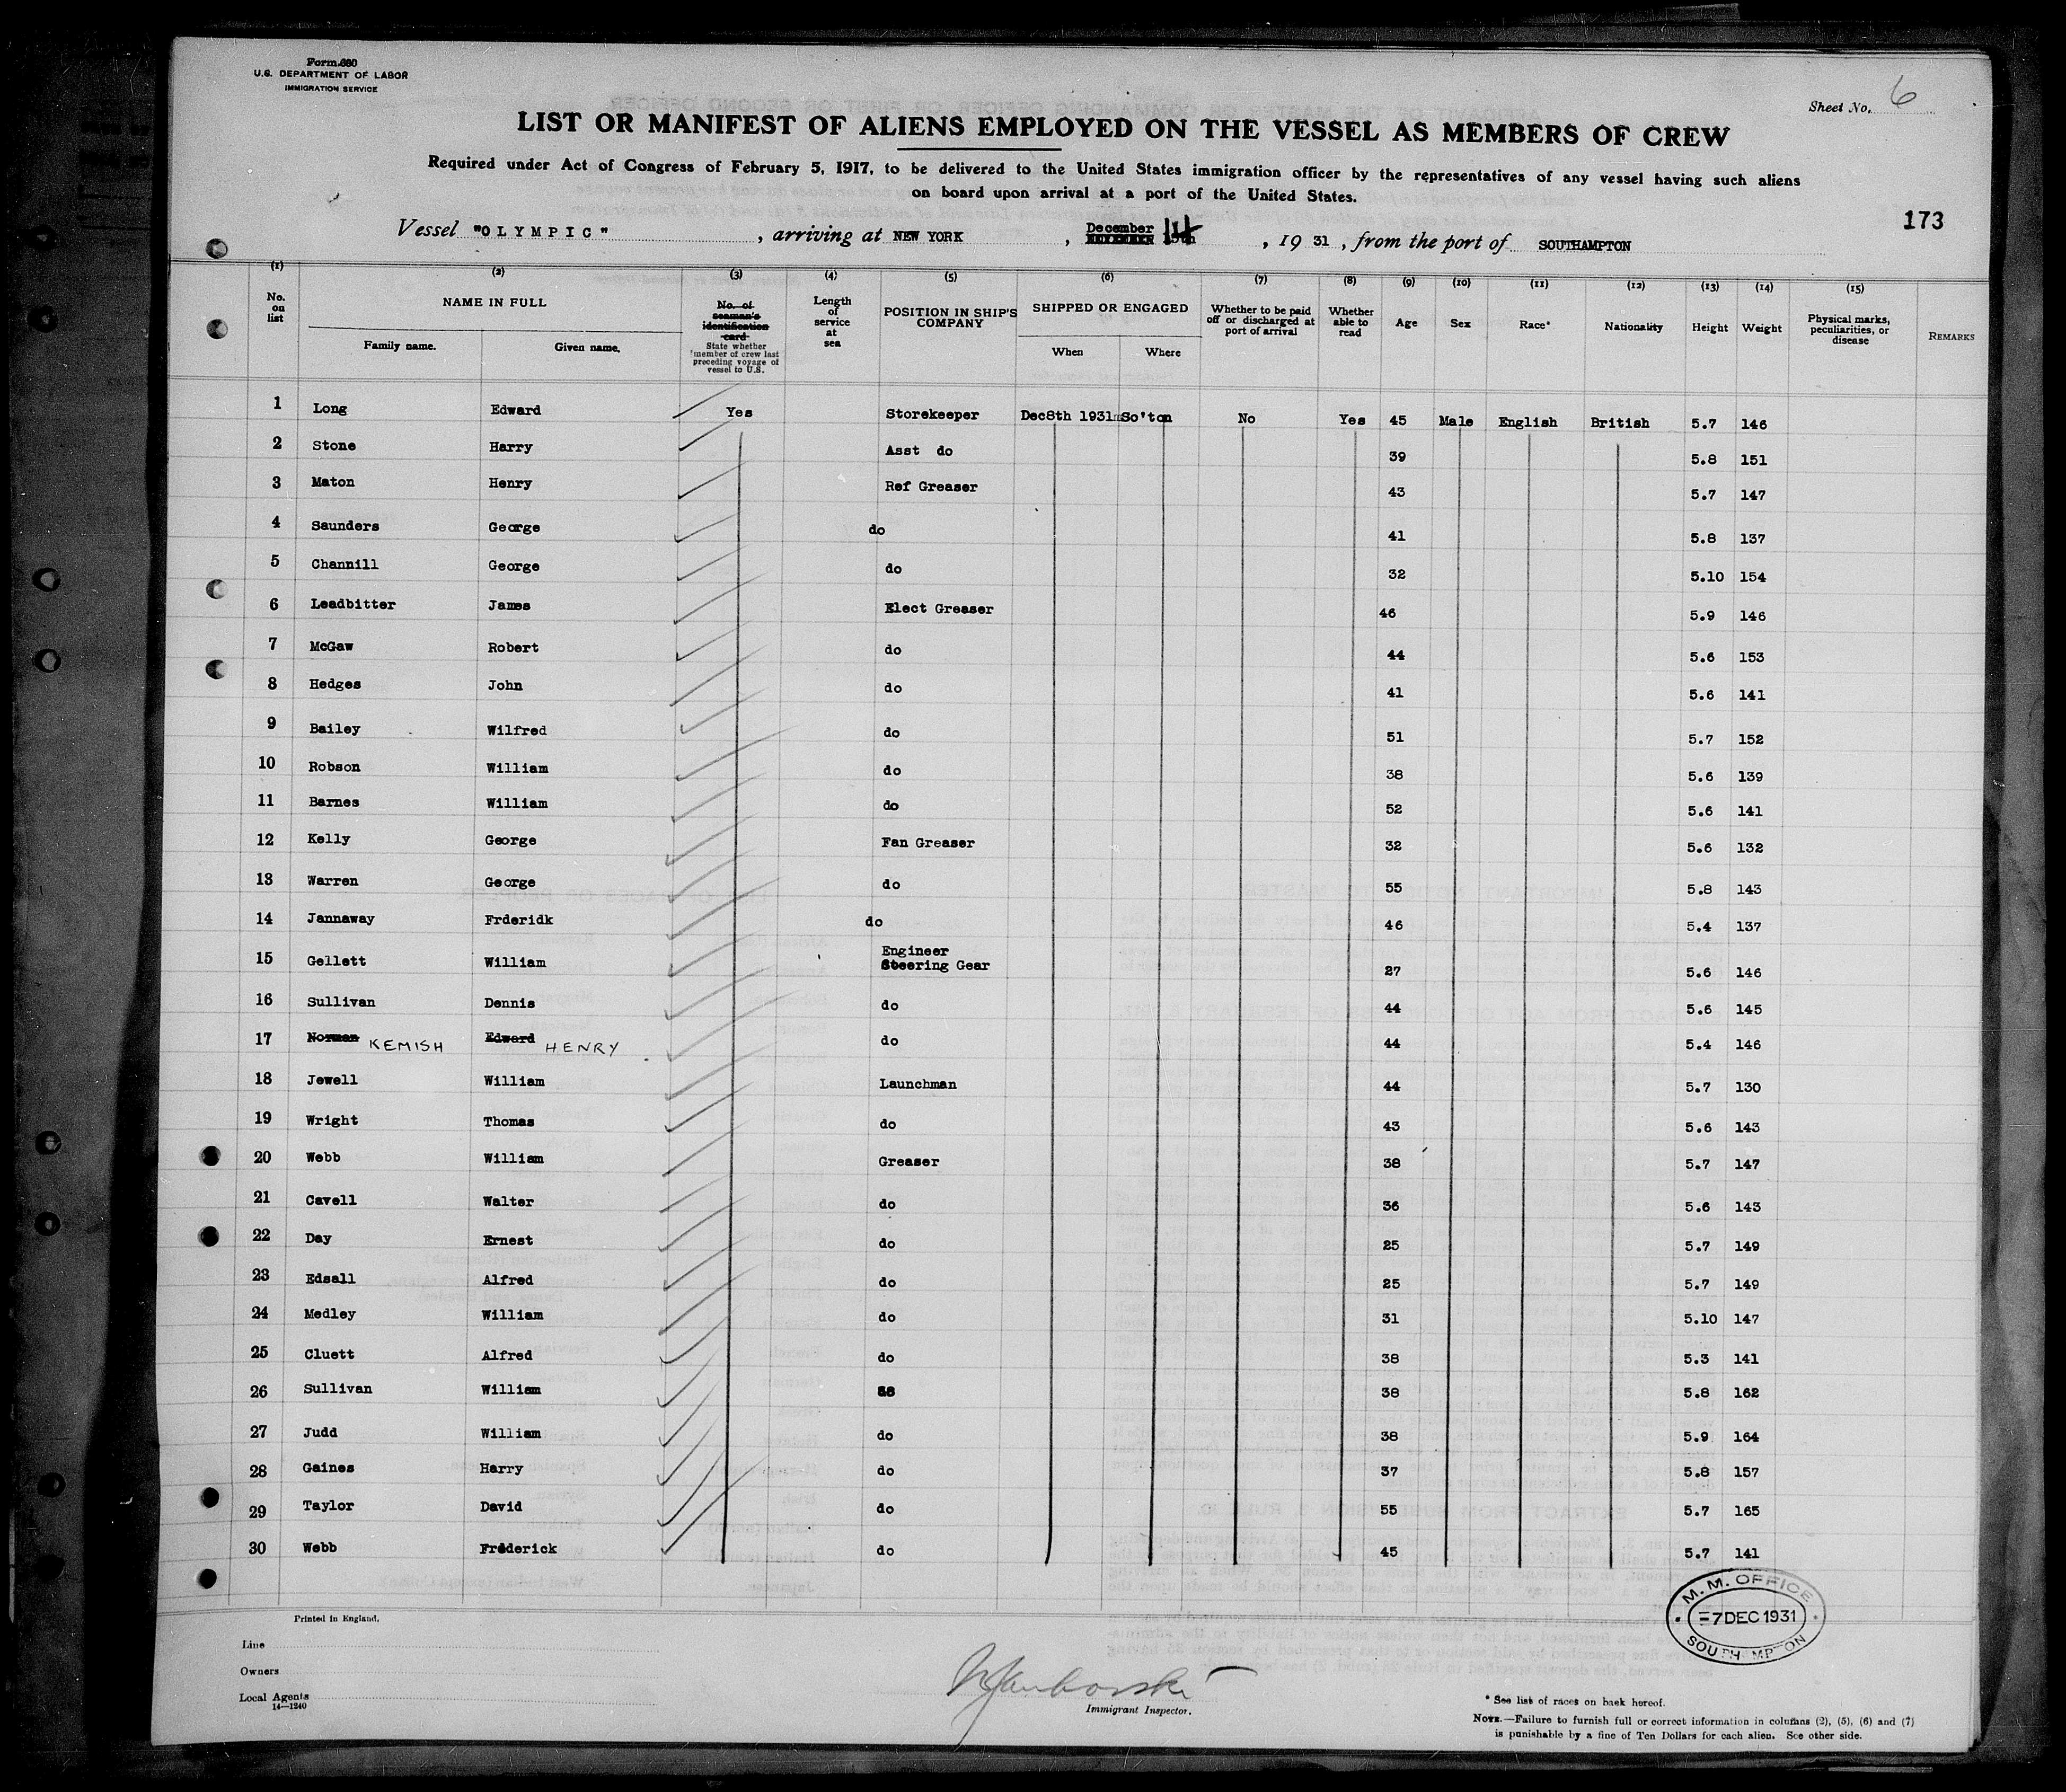 Form 680
U.S. DEPARTMENT OF LABOR
IMMIGRATION SERVICE
Sheet No. 6
LIST OR MANIFEST OF ALIENS EMPLOYED ON THE VESSEL AS MEMBERS OF CREW
Required under Act of Congress of February 5, 1917, to be delivered to the United States immigration officer by the representatives of any vessel having such aliens
on board upon arrival at a port of the United States.
173
Vessel "OLYMPIC", arriving at NEW YORK, December 14, 1931, from the port of SOUTHAMPTON
(1) (2) (3) (4) (5) (6) (7) (8) (9) (10) (11) (12) (13) (14) (15)
No. on list
NAME IN FULL
Family name. Given name.
No. of seaman's identification card
State whether member of crew last preceding voyage of vessel to U.S.
Length of service at sea
POSITION IN SHIP'S COMPANY
SHIPPED OR ENGAGED
When Where
Whether to be paid off or discharged at port of arrival
Whether able to read
Age
Sex
Race*
Nationality
Height
Weight
Physical marks, peculiarities, or disease
REMARKS
1 Long Edward Yes Storekeeper Dec8th 1931 So'ton No Yes 45 Male English British 5.7 146
2 Stone Harry Asst do 39 5.8 151
3 Maton Henry Ref Greaser 43 5.7 147
4 Saunders George do 41 5.8 137
5 Channill George do 32 5.10 154
6 Leadbitter James Elect Greaser 46 5.9 146
7 McGaw Robert do 44 5.6 153
8 Hedges John do 41 5.6 141
9 Bailey Wilfred do 51 5.7 152
10 Robson William do 38 5.6 139
11 Barnes William do 52 5.6 141
12 Kelly George Fan Greaser 32 5.6 132
13 Warren George do 55 5.8 143
14 Jannaway Frderidk do 46 5.4 137
15 Gellett William Engineer Steering Gear 27 5.6 146
16 Sullivan Dennis do 44 5.6 145
17 Norman KEMISH Edward HENRY do 44 5.4 146
18 Jewell William Launchman 44 5.7 130
19 Wright Thomas do 43 5.6 143
20 Webb William Greaser 38 5.7 147
21 Cavell Walter do 36 5.6 143
22 Day Ernest do 25 5.7 149
23 Edsall Alfred do 25 5.7 149
24 Medley William do 31 5.10 147
25 Cluett Alfred do 38 5.3 141
26 Sullivan William 38 5.8 162
27 Judd William do 38 5.9 164
28 Gaines Harry do 37 5.8 157
29 Taylor David do 55 5.7 165
30 Webb Frederick do 45 5.7 141
M. M. OFFICE
7 DEC 1931
SOUTHAMPTON
Printed in England.
Line
Owners
Local Agents
14—1240
Immigrant Inspector.
* See list of races on back hereof.
NOTE.—Failure to furnish full or correct information in columns (2), (5), (6) and (7)
is punishable by a fine of Ten Dollars for each alien. See other side.